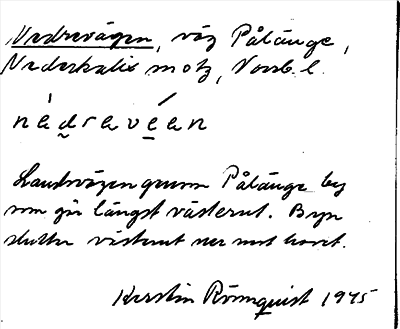 Nedrevägen, väg Pålänge,
Nederkalix sn o tg, Norrb. l.
nèdravéen
Landsvägen genom Pålänge by
som går längst västerut. Byn
sluttar västerut ner mot havet.
Kerstin Rönnquist 1975